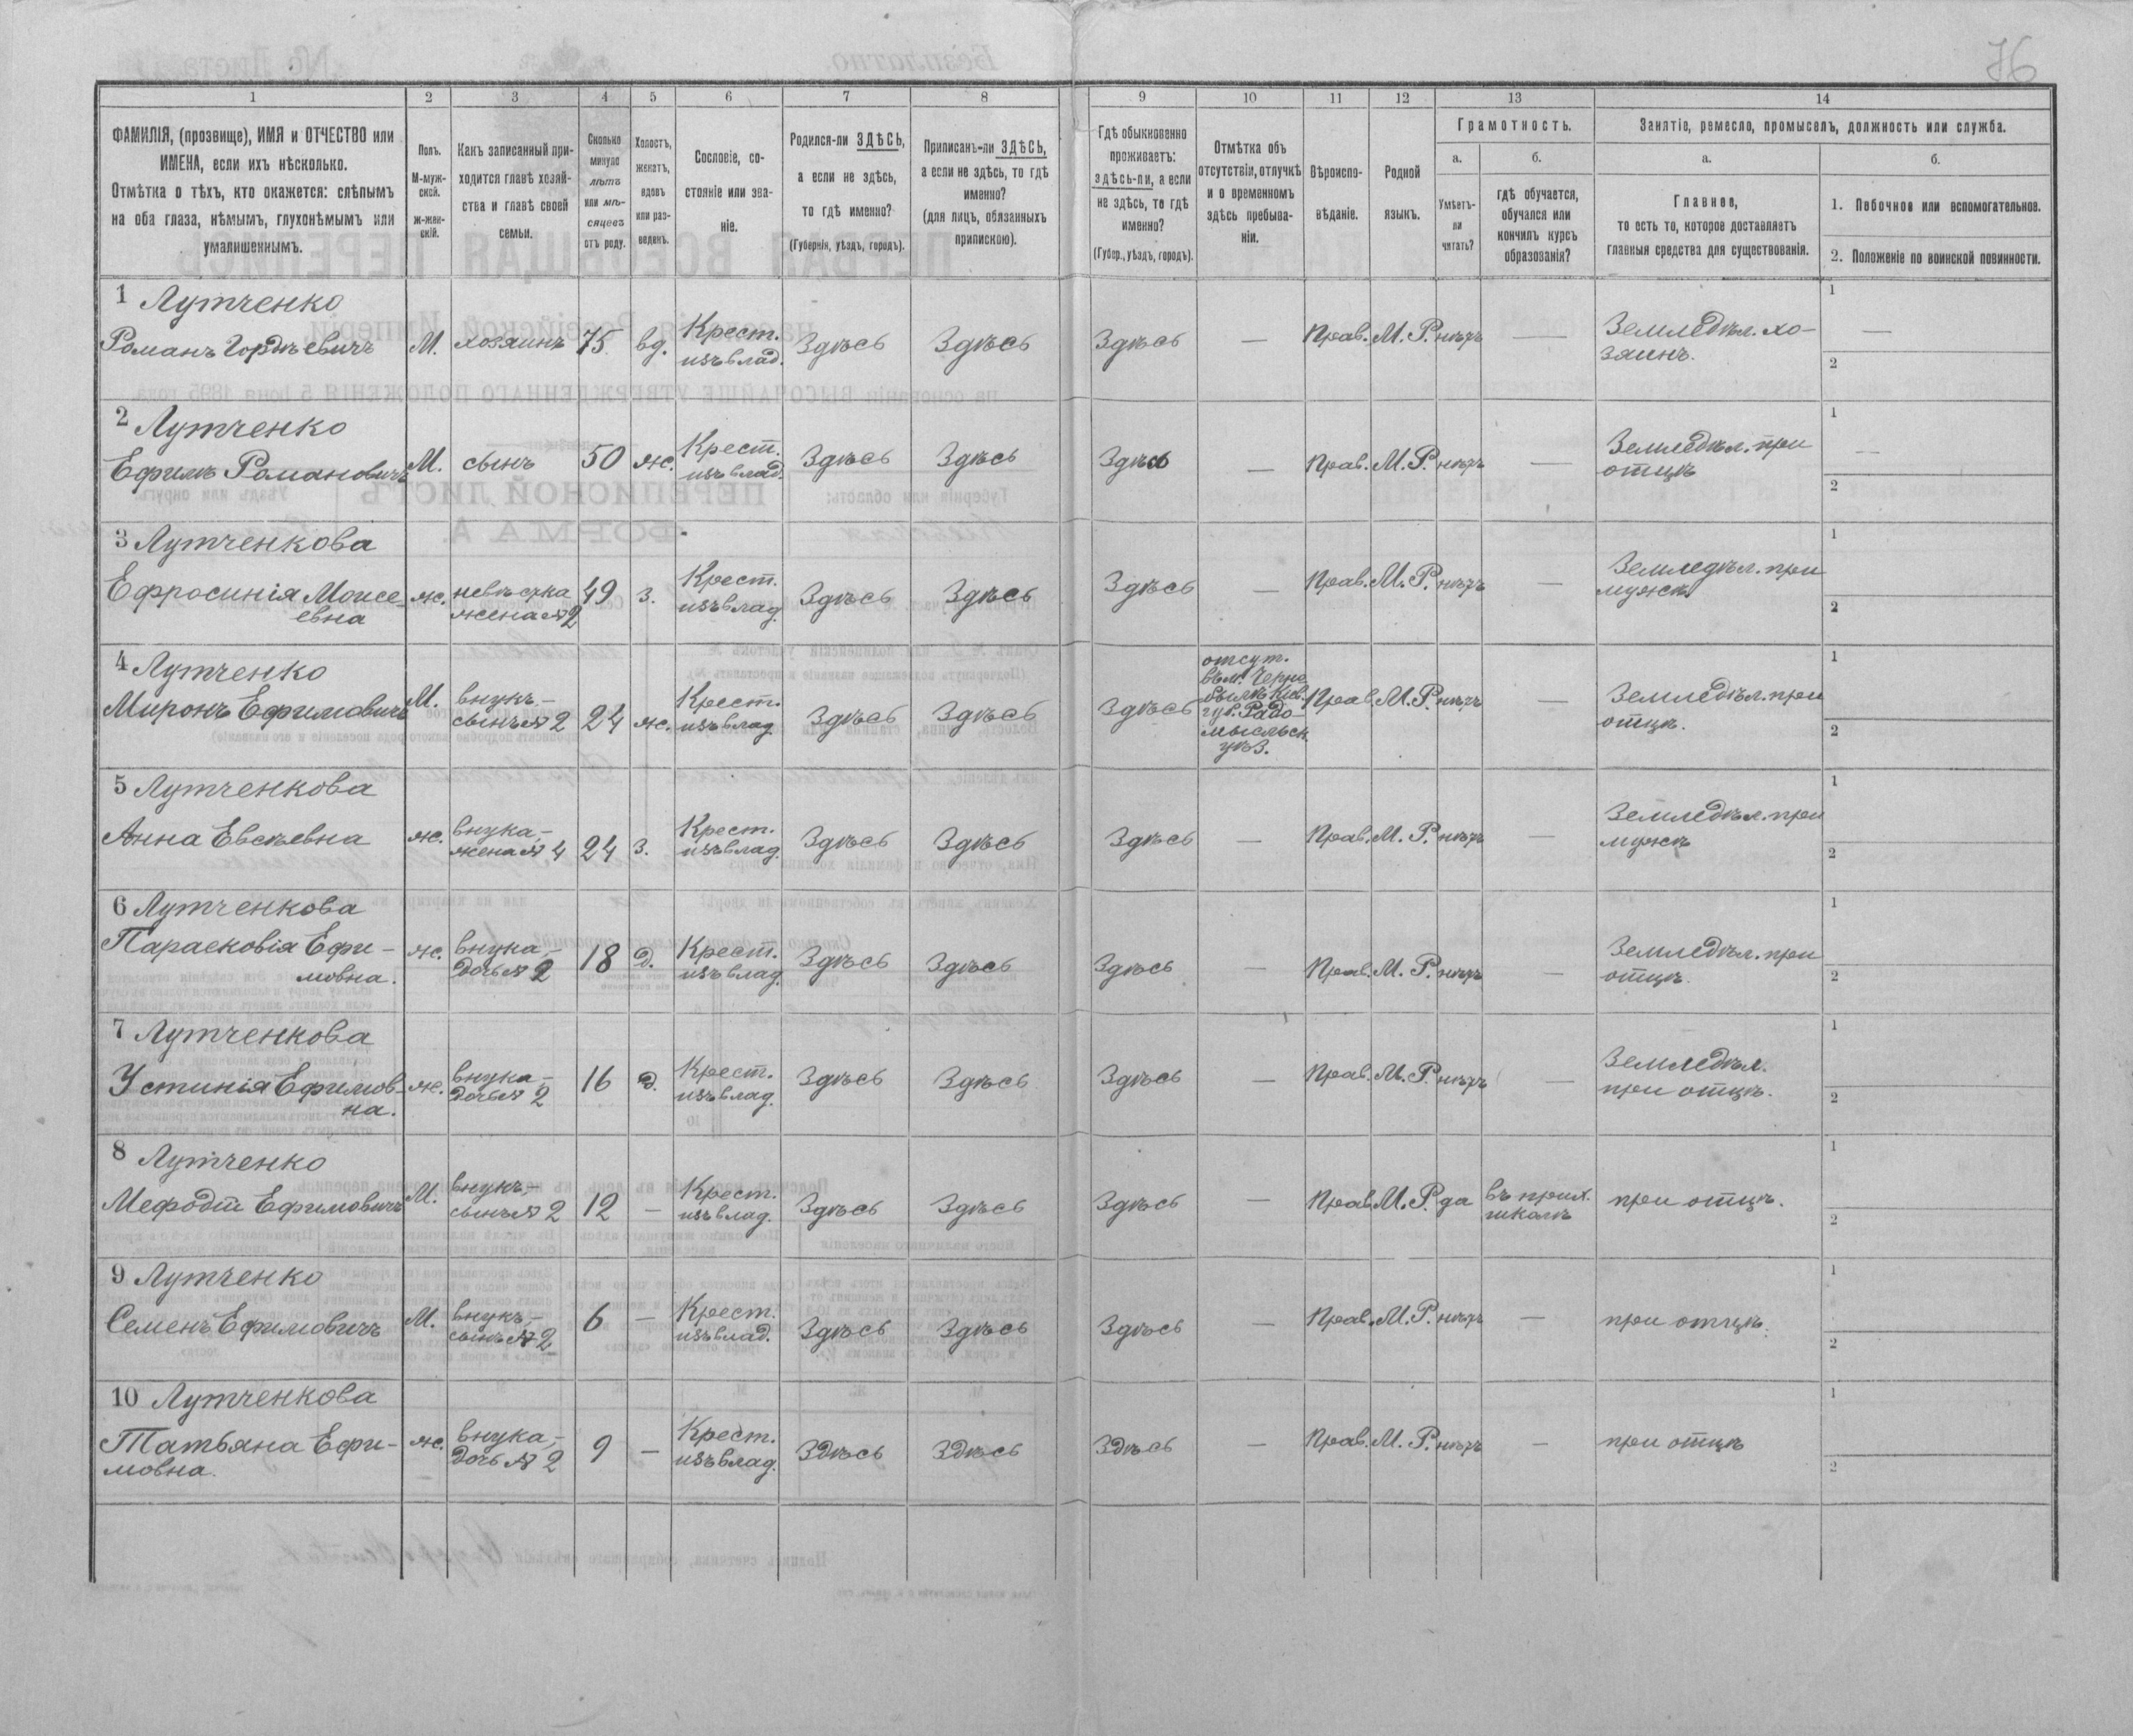 76
1 2 3 4 5 6 7 8 9 10 11 12 13 14
ФАМИЛІЯ, (прозвище), ИМЯ и ОТЧЕСТВО или
ИМЕНА, если ихъ нѣсколько.
Отмѣтка о тѣхъ, кто окажется: слѣпымъ
на оба глаза, нѣмымъ, глухонѣмымъ или
умалишеннымъ.
Полъ.
М-муж-
ской.
Ж-жен-
скій.
Какъ записанный при-
ходится главѣ хозяй-
ства и главѣ своей
семьи.
Сколько
минуло
лѣтъ
или мѣ-
сяцевъ
отъ роду.
Холостъ,
женатъ,
вдовъ
или раз-
веденъ.
Сословіе, со-
стояніе или зва-
ніе.
Родился-ли ЗДѢСЬ,
а если не здѣсь,
то гдѣ именно?
(Губернія, уѣздъ, городъ).
Приписанъ-ли ЗДѢСЬ,
а если не здѣсь, то гдѣ
именно?
(для лицъ, обязанныхъ
припискою).
Гдѣ обыкновенно
проживаетъ:
здѣсь-ли, а если
не здѣсь, то гдѣ
именно?
(Губер., уѣздъ, городъ).
Отмѣтка объ
отсутствіи, отлучкѣ
и о временномъ
здѣсь пребыва-
ніи.
Вѣроиспо-
вѣданіе.
Родной
языкъ.
Грамотность.
а.
Умѣетъ-
ли
читать?
б.
гдѣ обучается,
обучался или
кончилъ курсъ
образованія?
Занятіе, ремесло, промыселъ, должность или служба.
а.
Главное,
то есть то, которое доставляетъ
главныя средства для существованія.
б.
1. Побочное или вспомогательное.
2. Положеніе по воинской повинности.
1 Лутченко
Романъ Гордѣевичъ М. хозяинъ 75 вд. Крест. изъ влад. Здѣсь Здѣсь Здѣсь — Прав. М. Р. нѣтъ — Земледѣл. хо-
зяинъ.
1 —
2
2 Лутченко
Ефимъ Романовичъ М. сынъ 50 ж. Крест. изъ влад. Здѣсь Здѣсь Здѣсь — Прав. М. Р. нѣтъ — Земледѣл. при
отцѣ
1 —
2
3 Лутченкова
Ефросинія Моисе-
евна ж. невѣстка
жена № 2 49 з. Крест. изъ влад. Здѣсь Здѣсь Здѣсь — Прав. М. Р. нѣтъ — Земледѣл. при
мужѣ
1
2
4 Лутченко
Миронъ Ефимовичъ М. внукъ,-
сынъ № 2 24 ж. Крест. изъ влад. Здѣсь Здѣсь Здѣсь
отсут.
въ м. Черно
былѣ Кіев.
губ. Радо-
мысльск.
уѣз.
Прав. М. Р. нѣтъ — Земледѣл. при
отцѣ.
1
2
5 Лутченкова
Анна Евсѣевна ж. внука,-
жена № 4 24 з. Крест. изъ влад. Здѣсь Здѣсь Здѣсь — Прав. М. Р. нѣтъ — Земледѣл. при
мужѣ
1
2
6 Лутченкова
Парасковія Ефи-
мовна. ж. внука,-
дочь № 2 18 д. Крест. изъ влад. Здѣсь Здѣсь Здѣсь — Прав. М. Р. нѣтъ — Земледѣл. при
отцѣ.
1
2
7 Лутченкова
Устинія Ефимов-
на. ж. внука,-
дочь № 2 16 д. Крест. изъ влад. Здѣсь Здѣсь Здѣсь — Прав. М. Р. нѣтъ — Земледѣл.
при отцѣ.
1
2
8 Лутченко
Мефодій Ефимовичъ М. внукъ,-
сынъ № 2 12 — Крест. изъ влад. Здѣсь Здѣсь Здѣсь — Прав. М. Р. да въ прих.
школѣ при отцѣ.
1
2
9 Лутченко
Семенъ Ефимовичъ М. внукъ,-
сынъ № 2 6 — Крест. изъ влад. Здѣсь Здѣсь Здѣсь — Прав. М. Р. нѣтъ — при отцѣ.
1
2
10 Лутченкова
Татьяна Ефи-
мовна. ж. внука,-
дочь № 2 9 — Крест. изъ влад. Здѣсь Здѣсь Здѣсь — Прав. М. Р. нѣтъ — при отцѣ
1
2